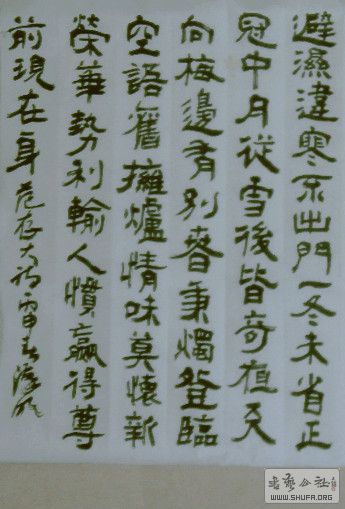 避濕違寒不出門一冬未省正
冠巾月從雪後皆奇夜天
向梅邊有別春秉燭登臨
空語舊擁爐情味莫懷新
榮華勢利輸人慣贏得尊
前現在身 范成大詩
书艺公社
WWW.SHUFA.ORG